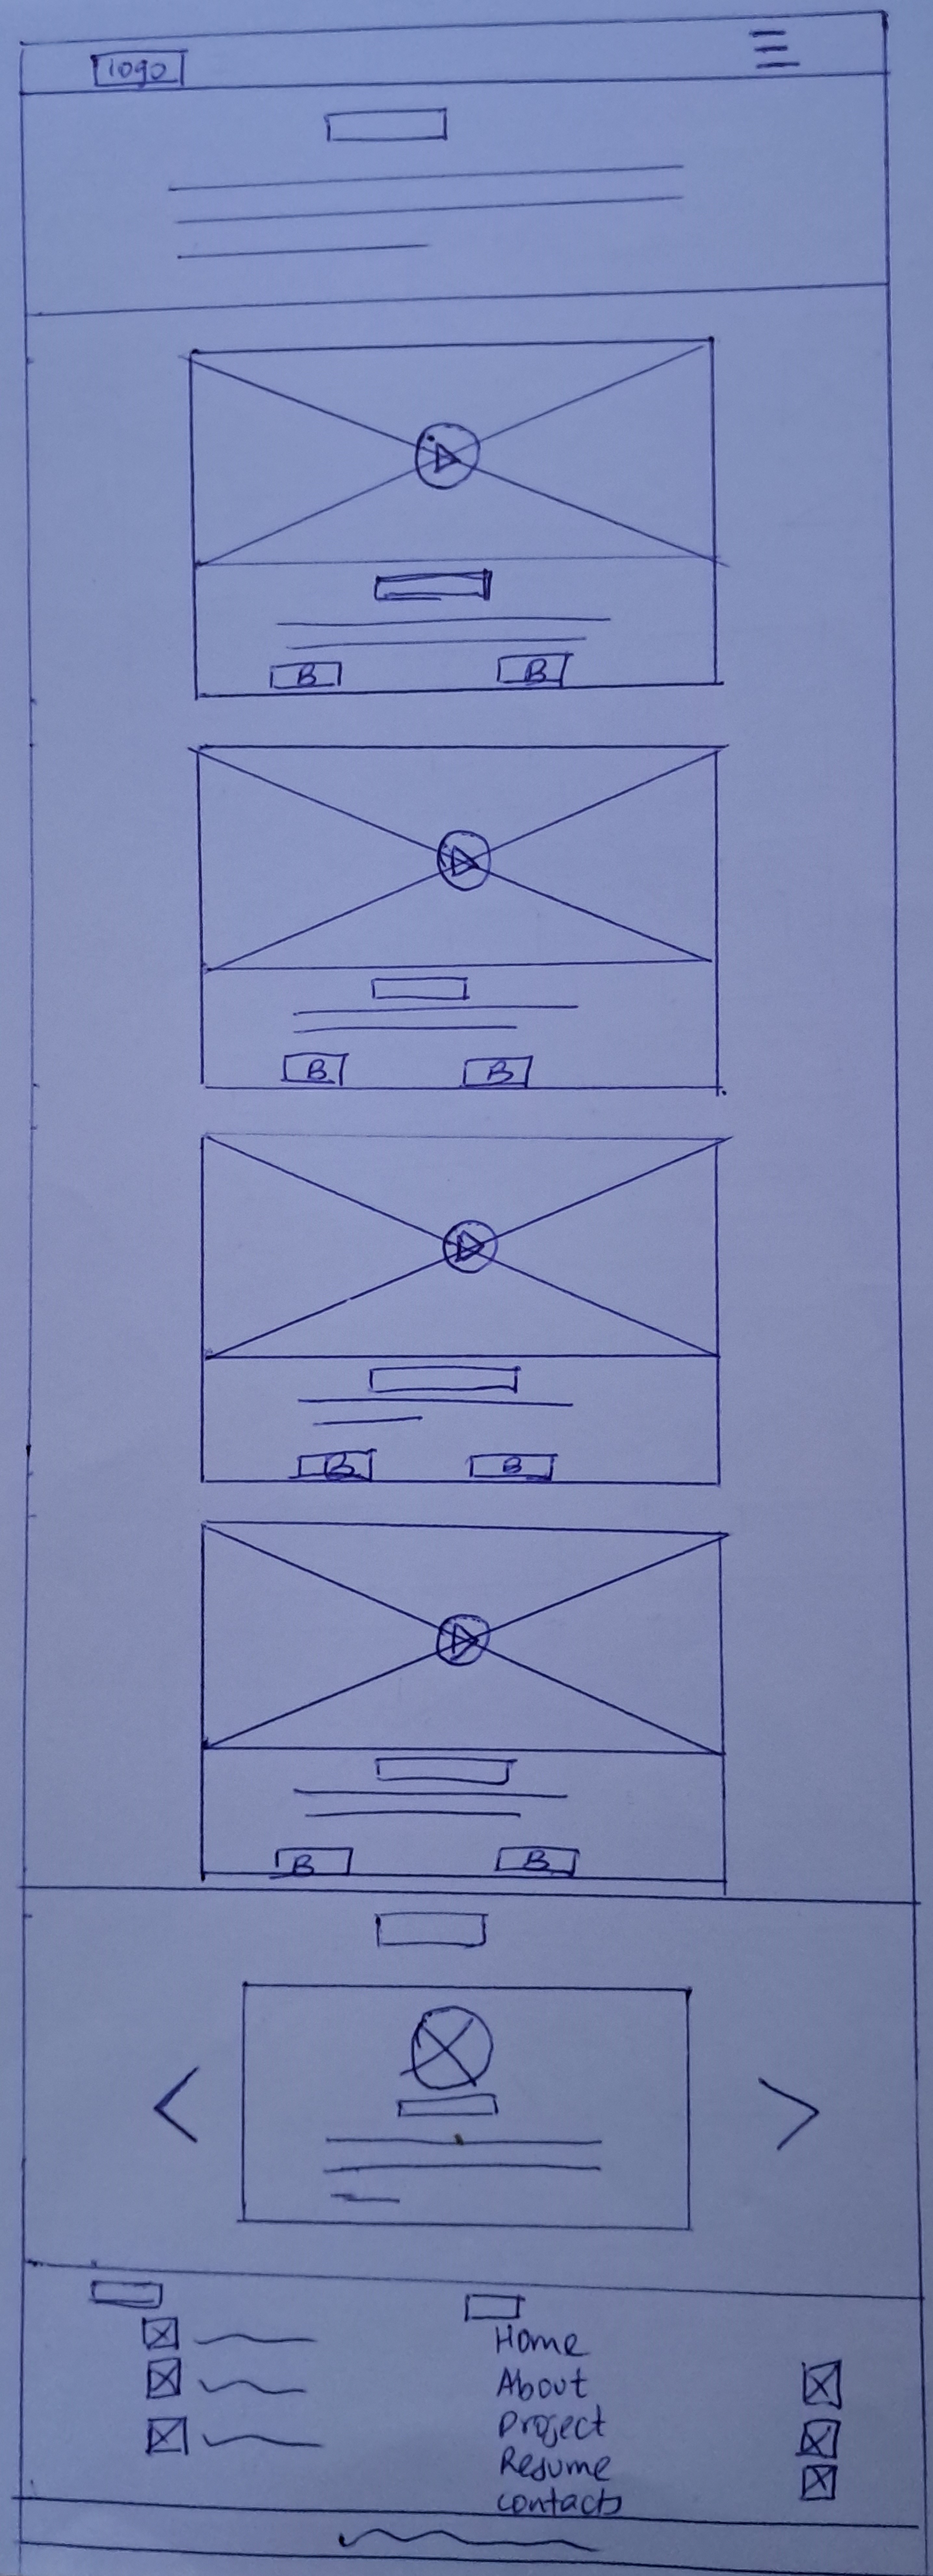 logo
B B
B B
B B
B B
Home
About
Project
Resume
contacts